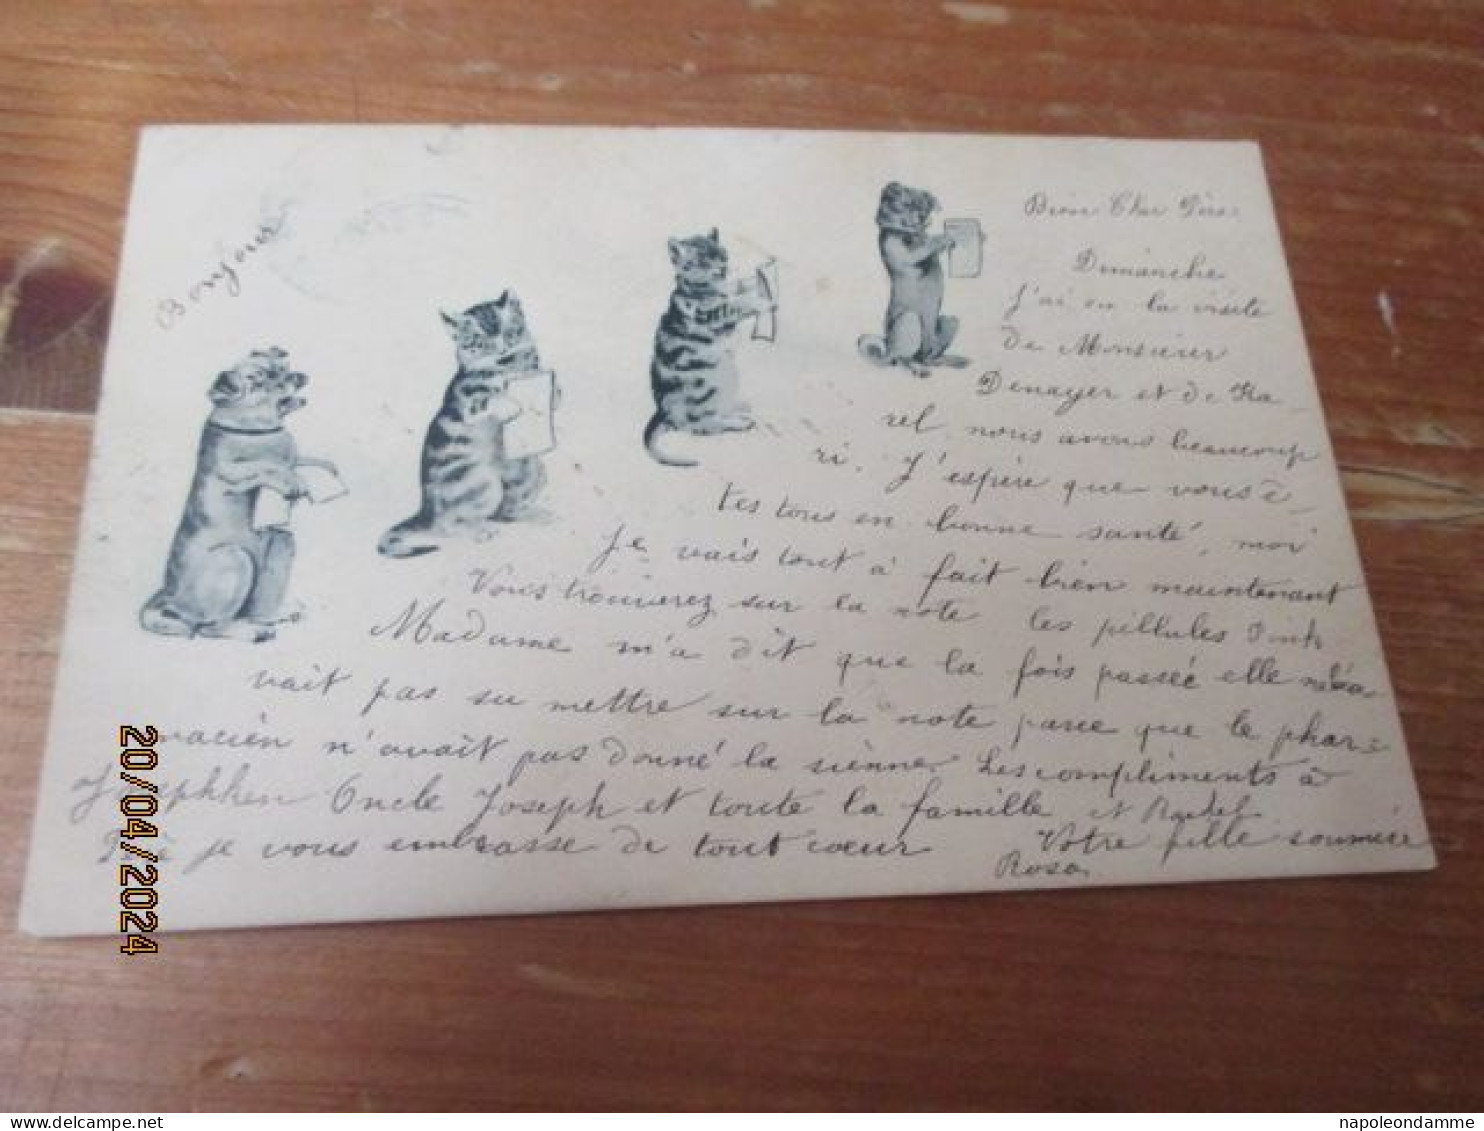 Bonjour
Bien Cher Père
Dimanche
J'ai eu la visite
de Monsieur
Denayer et de Ka-
rel, nous avons beaucoup
ri. J'espère que vous ê-
tes tous en bonne santé, moi
Je vais tout à fait bien maintenant
Vous trouverez sur la note les pillules
Madame m'a dit que la fois passée elle n'a
vait pas su mettre sur la note parce que le phar=
macien n'avait pas donné la sienne. Les compliments à
Josephken Oncle Joseph et toute la famille et Rachel
je vous embrasse de tout cœur Votre fille soumise
Rosa
20/04/2024
napoleondamme